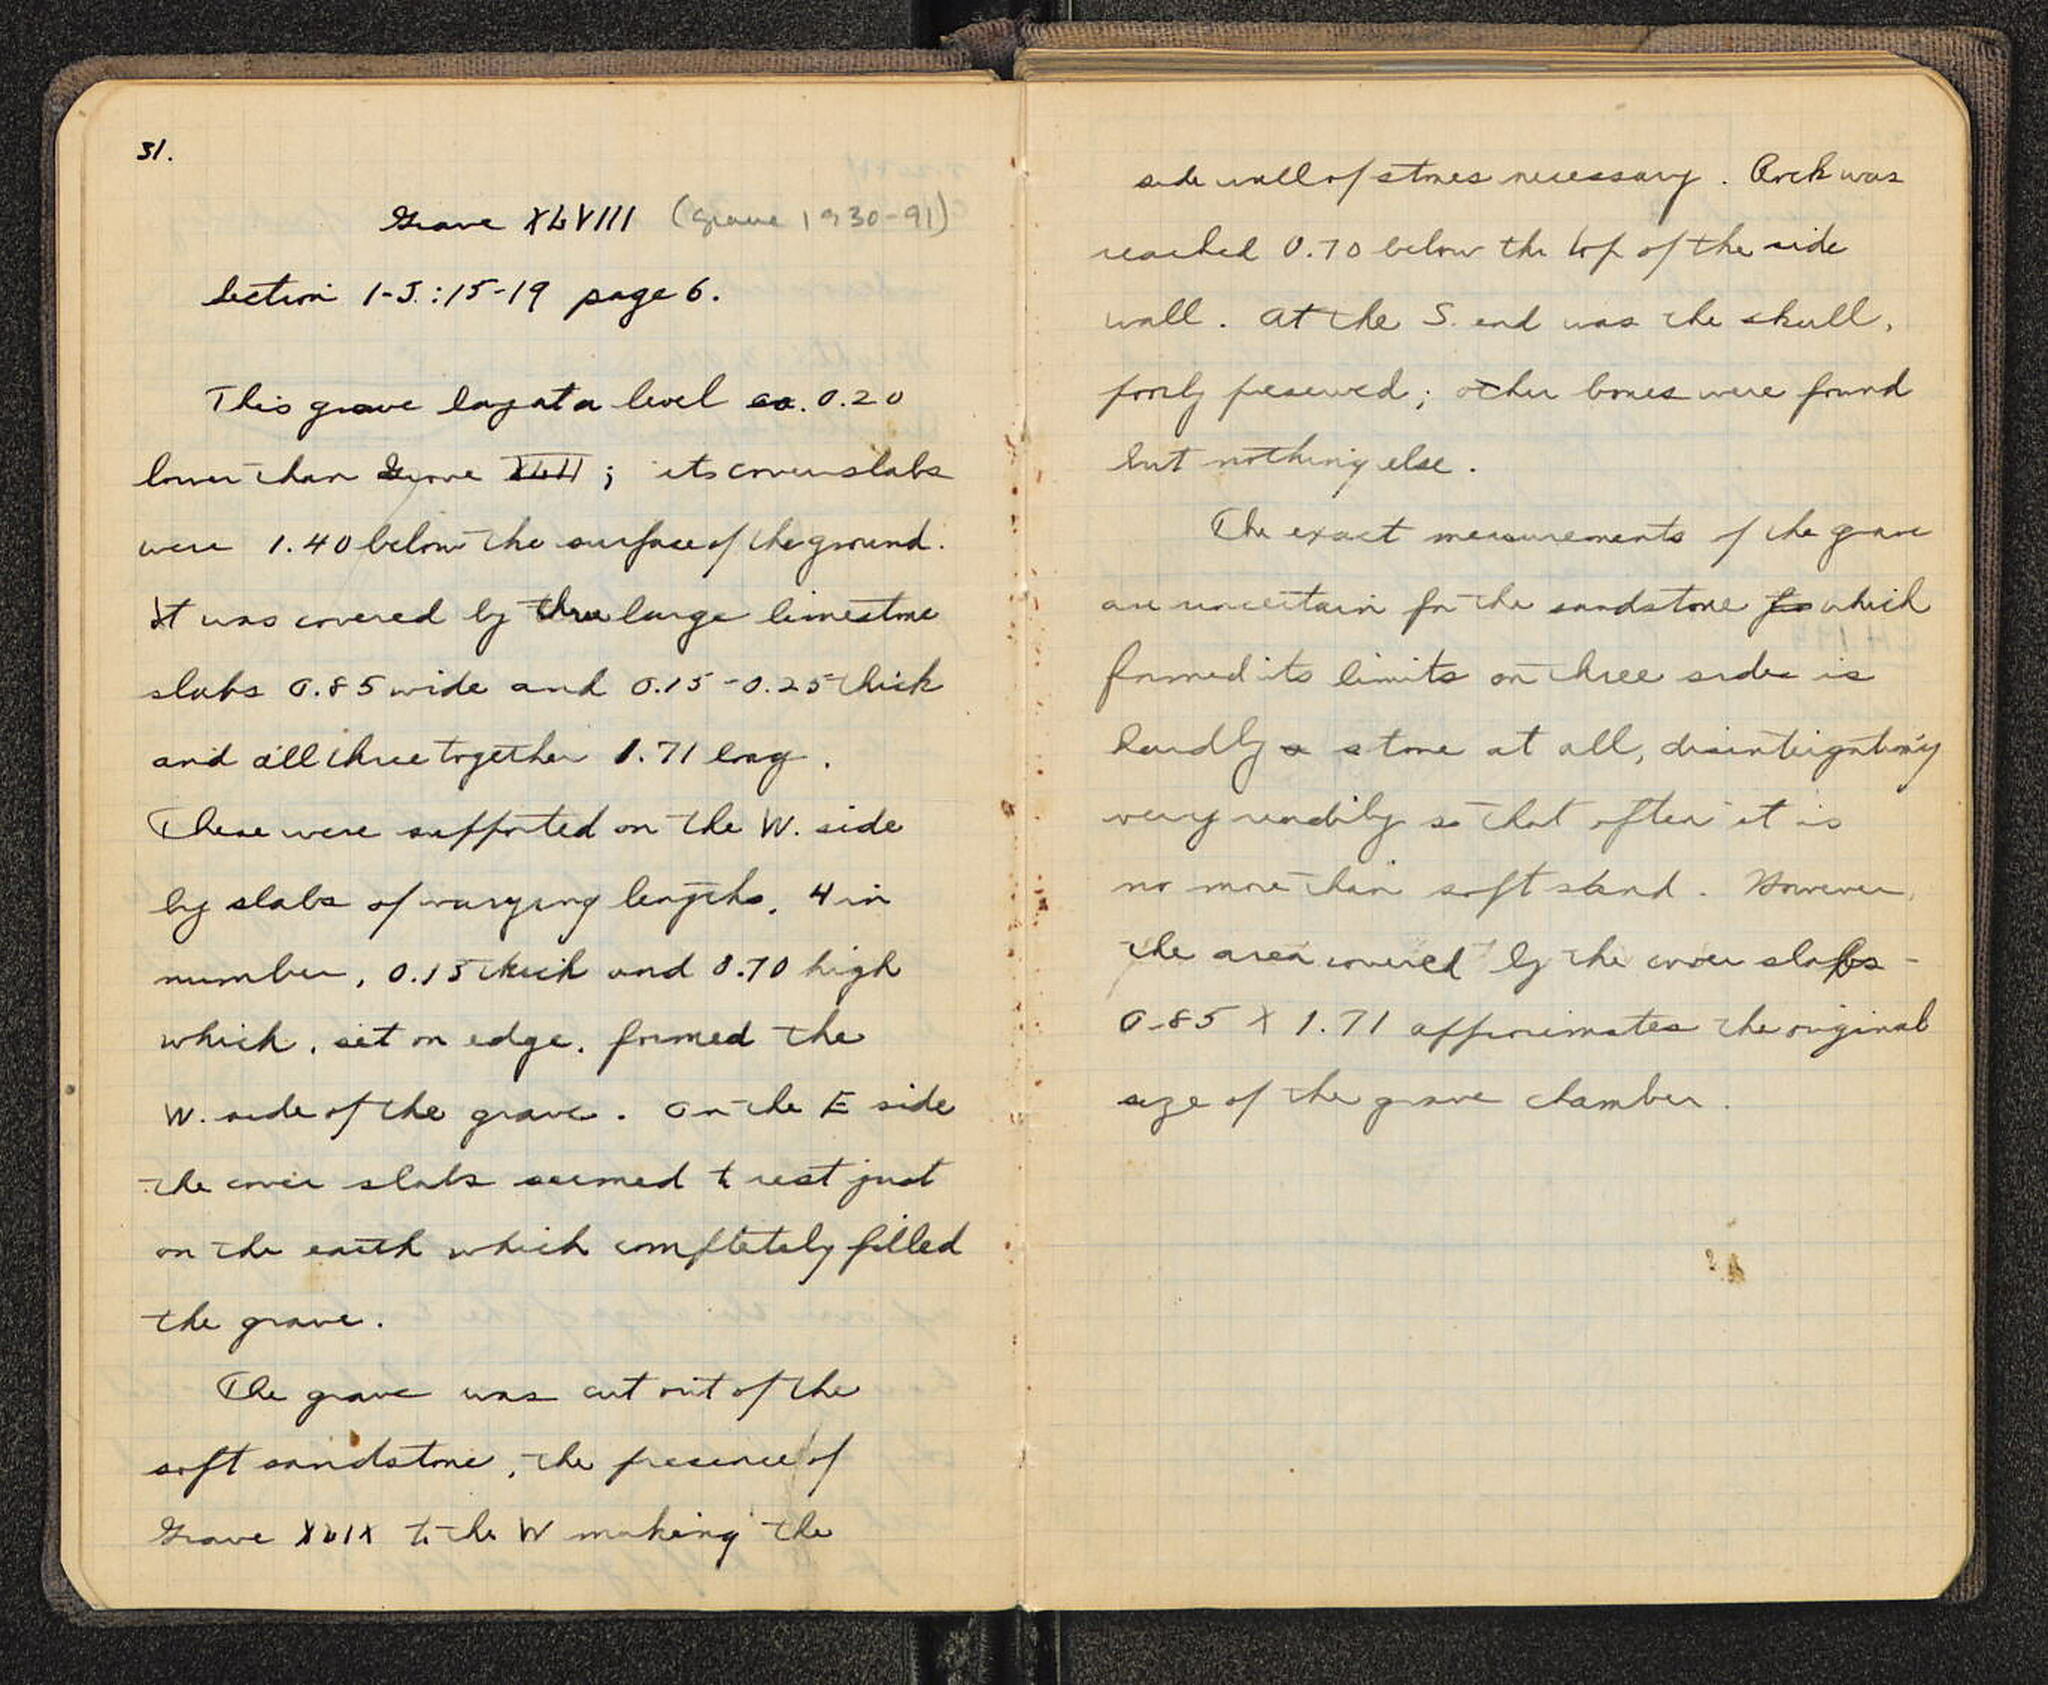 31.
Grave XLVIII (Grave 1930-91)
Section 1-J.:15-19 page 6.
This grave lay at a level ca. 0.20
lower than Grave XLII; its cover slabs
were 1.40 below the surface of the ground.
It was covered by three large limestone
slabs 0.85 wide and 0.15-0.25 thick
and all three together 1.71 long.
These were supported on the W. side
by slabs of varying lengths, 4 in
number, 0.15 thick and 0.70 high
which, set on edge, formed the
W. side of the grave. On the E side
the cover slabs seemed to rest just
on the earth which completely filled
the grave.
The grave was cut out of the
soft sandstone, the presence of
Grave XLIX to the W making the
side wall of stones necessary. Rock was
reached 0.70 below the top of the side
wall. At the S. end was the skull,
poorly preserved; other bones were found
but nothing else.
The exact measurements of the grave
are uncertain for the sandstone fo which
formed its limits on three sides is
hardly a stone at all, disinteignating
very readily so that often it is
no more than soft sand. However,
the area covered by the cover slabs -
0.85 X 1.71 approximates the original
size of the grave chamber.